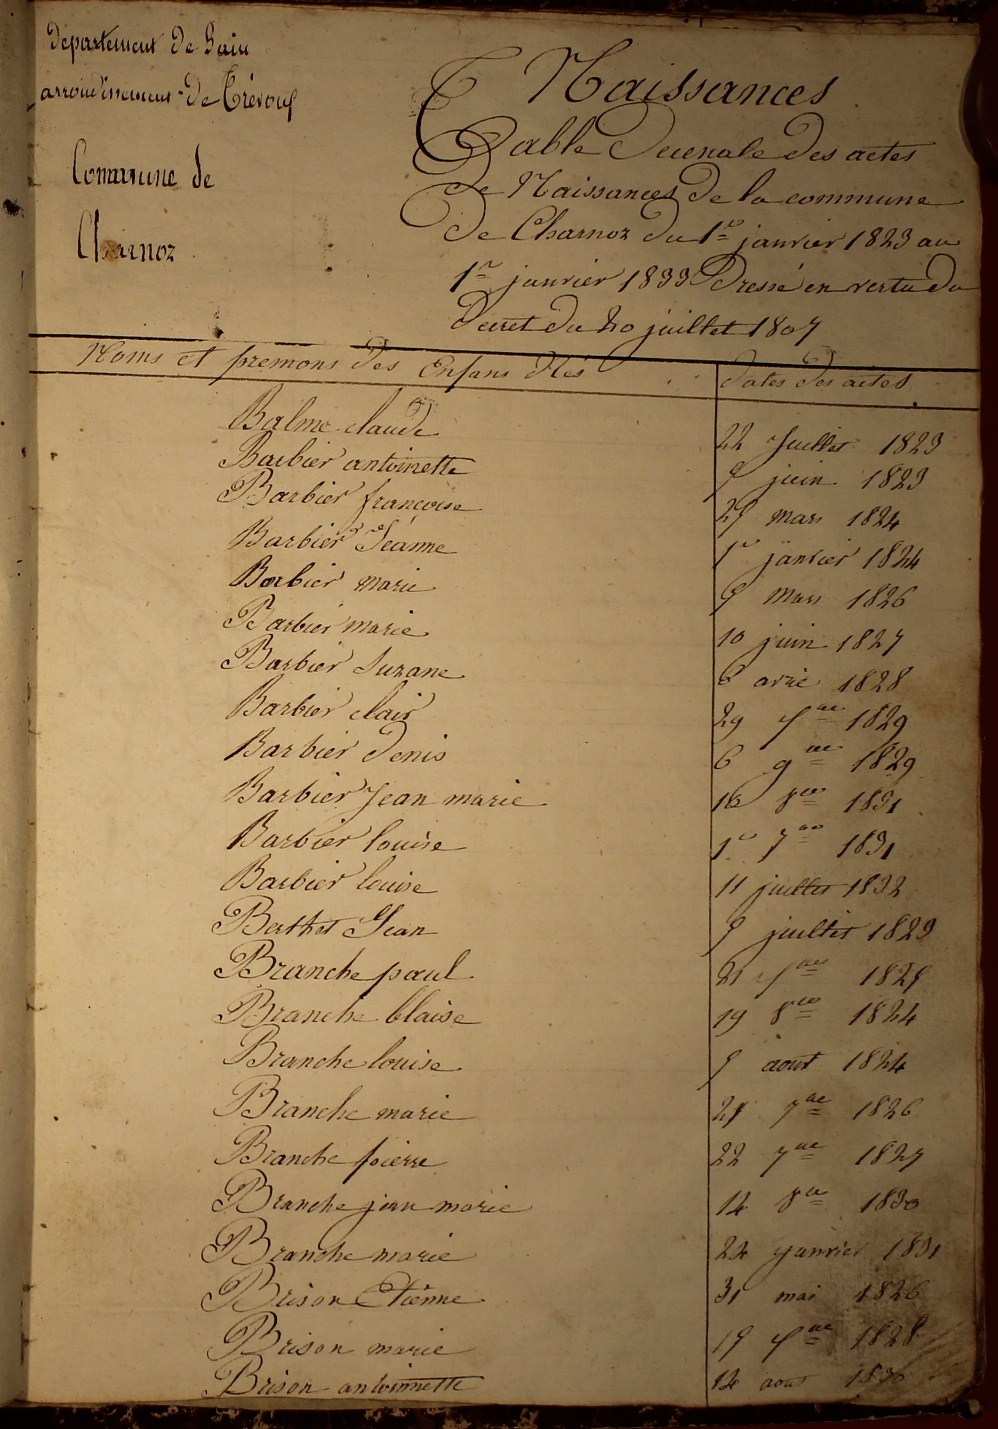 departement de Lain
arrondissement de Trévoux
Commune de
Charnoz
Naissances
Table Decenale des actes
de Naissances de la commune
de Charnoz du 1er janvier 1823 au
1er janvier 1833 Dressé en vertu du
Decret du 20 juillet 1807
Noms et premons des Enfans Nés
dates des actes
Balme claude 22 Juillet 1823
Barbier antoinette 9 juin 1823
Barbier francoise 29 mars 1824
Barbier Jéanne 1er janvier 1824
Barbier marie 9 mars 1826
Barbier marie 10 juin 1827
Barbier Suzane 6 avril 1828
Barbier clair 29 1829
Barbier Denis 6 9bre 1829
Barbier Jean marie 8bre 1831
Barbier louise 1er 7bre 1831
Barbier louise 11 juillet 1832
Berthet Jean 9 juillet 1823
Branche paul 21
Branche blaise 19 8bre 1824
Branche louise 9 aout 1824
Branche marie 7bre 1826
Branche pierre 22 7bre 1827
Branche jean marie 14 8bre 1830
Branche marie 24 janvier 1831
Brison Etienne 31 mai 1826
Brison marie 19 1828
Brison antoinnette 14 aout 1830